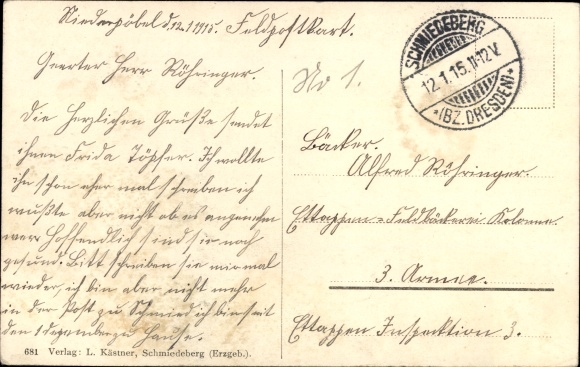 Niederpöbel d. 12. 1 1915. Feldpostkart.
Geerter Herr Röhringer.
Die Herzlichen Grüße sendet
ihnen Frida Töpfer. Ich wollte
ihn schon eher mal schreiben ich
wußte aber nicht ob es angenehm
wer Hoffendlich sind sie noch
gesund. Bitt schreiben sie mir mal
wieder, ich bin aber nicht mehr
in der Post zu Schmied ich bin seit
den 1 dezember zu Hause.
681 Verlag: L. Kästner, Schmiedeberg (Erzgeb.).
No 1.
SCHMIEDEBERG
12.1.15.11-12V.
*(BZ. DRESDEN)*
Bäcker.
Alfred Röhringer.
Ettappen-Feldbäckerei-Kolonne.
3. Armee.
Ettappen Inspektion 3.